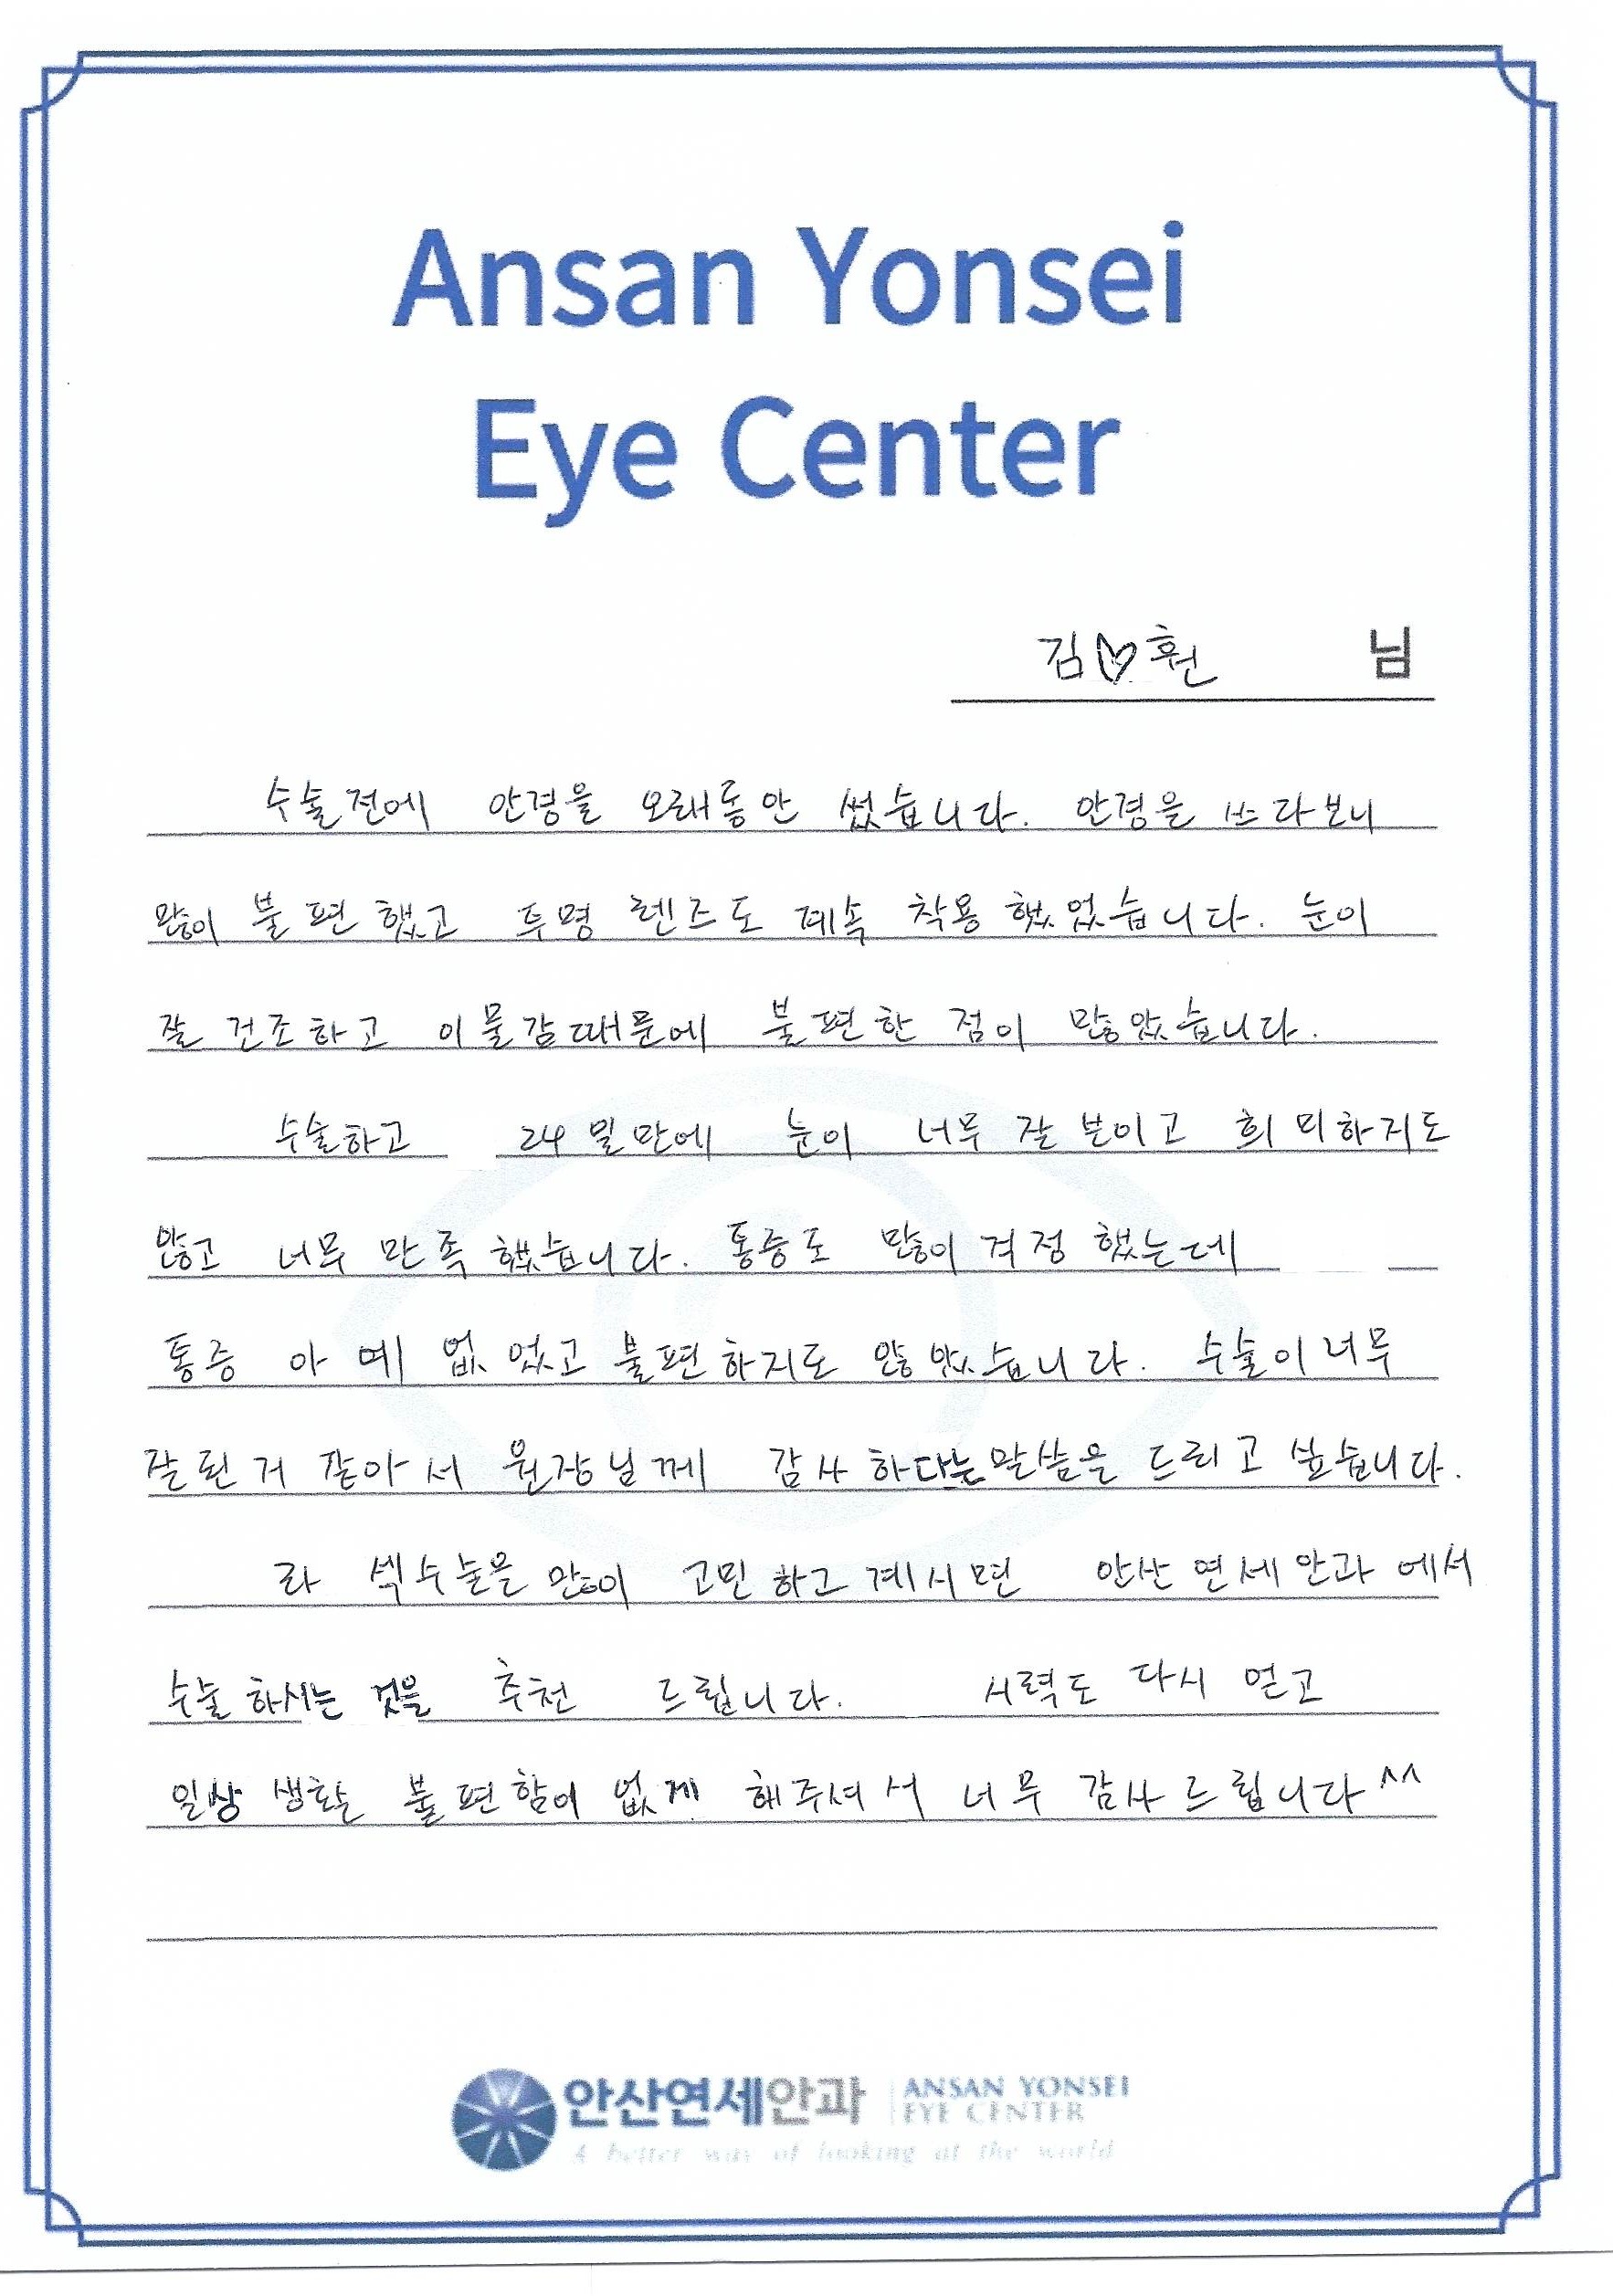 Ansan Yonsei
Eye Center
김♡훤 님
수술전에 안경을 오래동안 썼습니다. 안경을 쓰다보니
많이 불편했고 투명 렌즈도 계속 착용했었습니다. 눈이
잘 건조하고 이물감때문에 불편한 점이 많았습니다.
수술하고 24일만에 눈이 너무 잘 보이고 희미하지도
않고 너무 만족했습니다. 통증도 많이 걱정했는데
통증 아예 없었고 불편하지도 않았습니다. 수술이 너무
잘된거 같아서 원장님께 감사하다는 말씀을 드리고 싶습니다.
라섹수술을 많이 고민하고 계시면 안산연세안과에서
수술하시는 것을 추천 드립니다. 시력도 다시 얻고
일상 생활 불편함이 없게 해주셔서 너무 감사드립니다^^
안산연세안과 ANSAN YONSEI
EYE CENTER
A better way of looking at the world